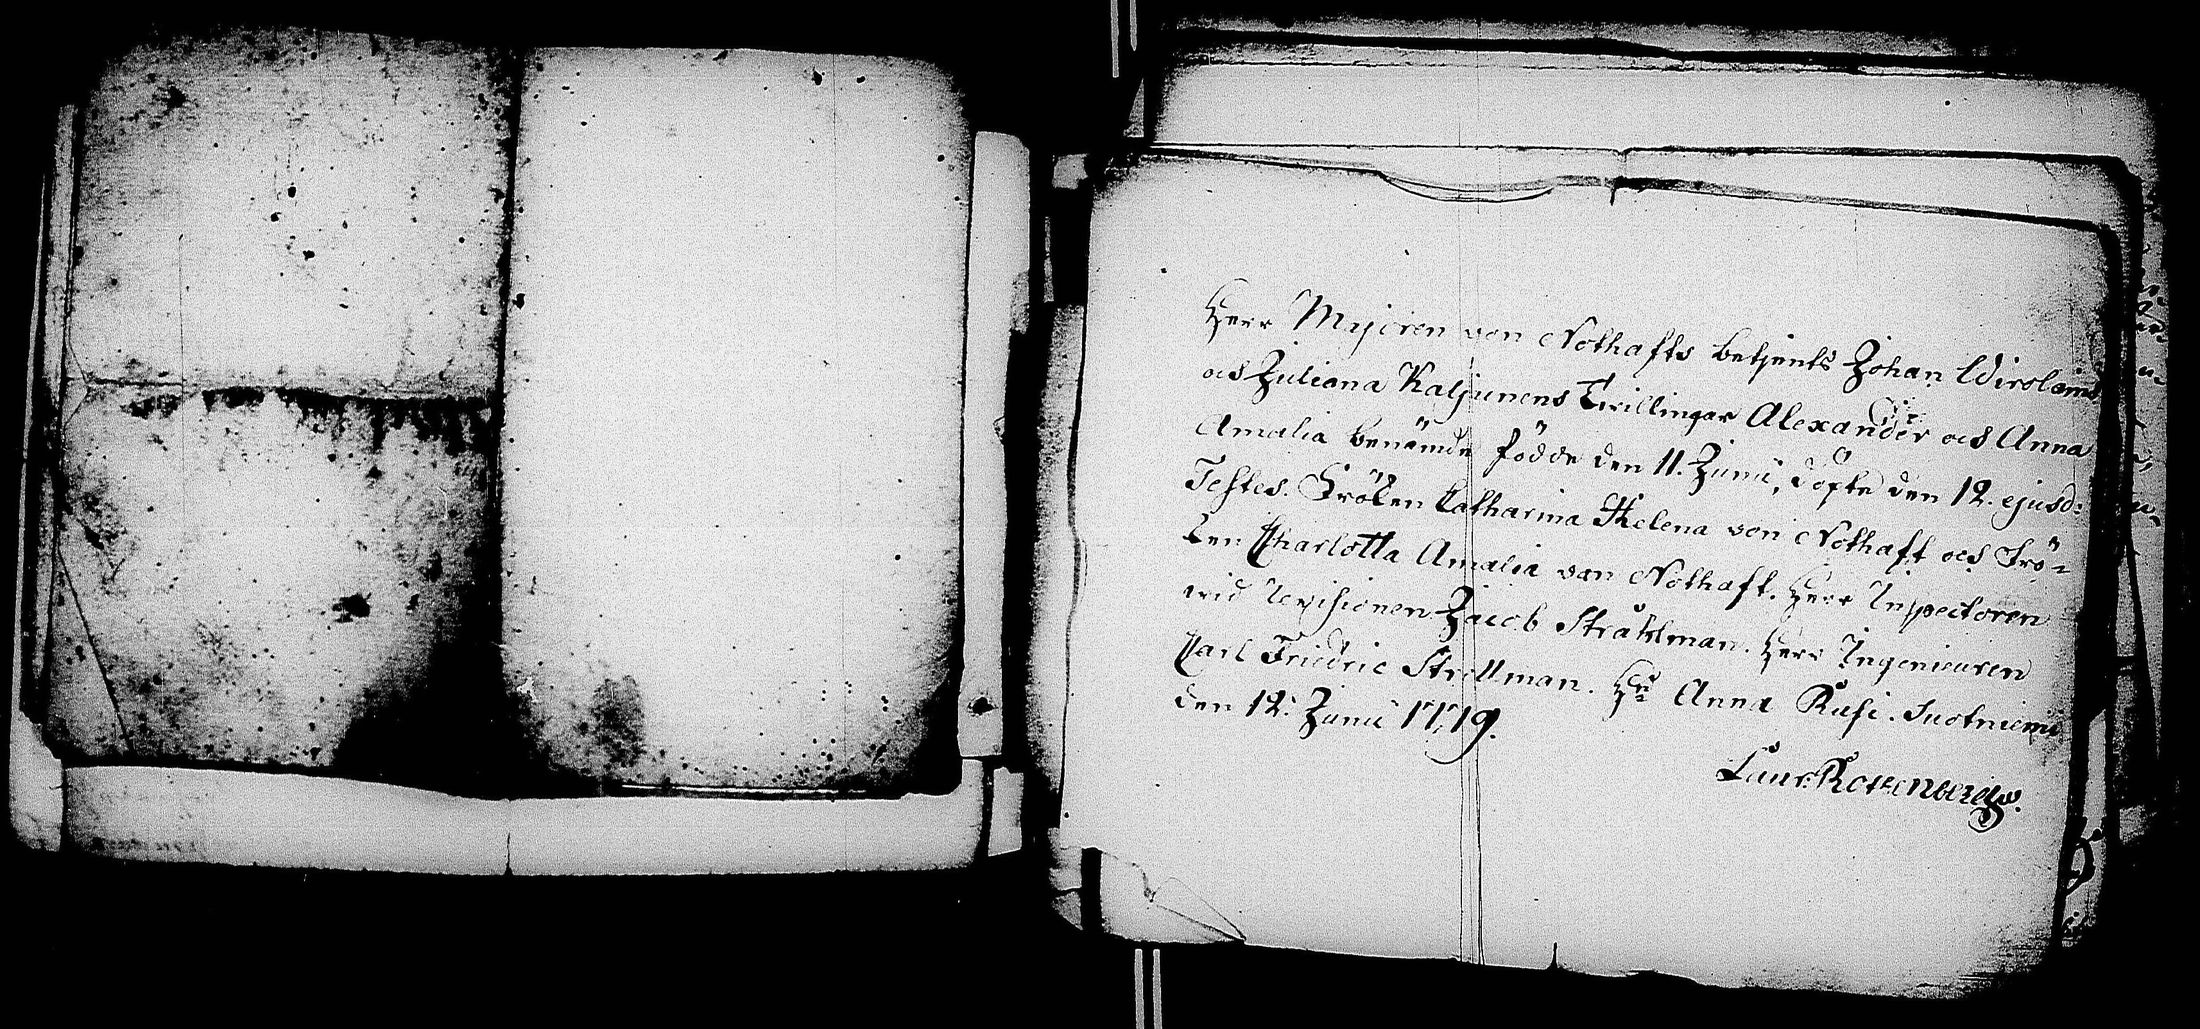 Herr Majoren von Nothafts betjents Johan Wirolain
och Juliana Katjunens Twillingar Alexander och Anna
Amalia benämde födde den 11. Junii, döpte den 12. ejusd:
Testes. Fröken Catharina Helena von Nothaft och Frö-
ken Charlotta Amalia von Nothaft. Herr Inspectoren
wid Revisionen Jacob Stråhlman. Herr Ingenieuren
Carl Friedric Strellman. Hu Anna Kusi. Suotniemi
den 12. Junii 1779.
Laur: Rottenberg.